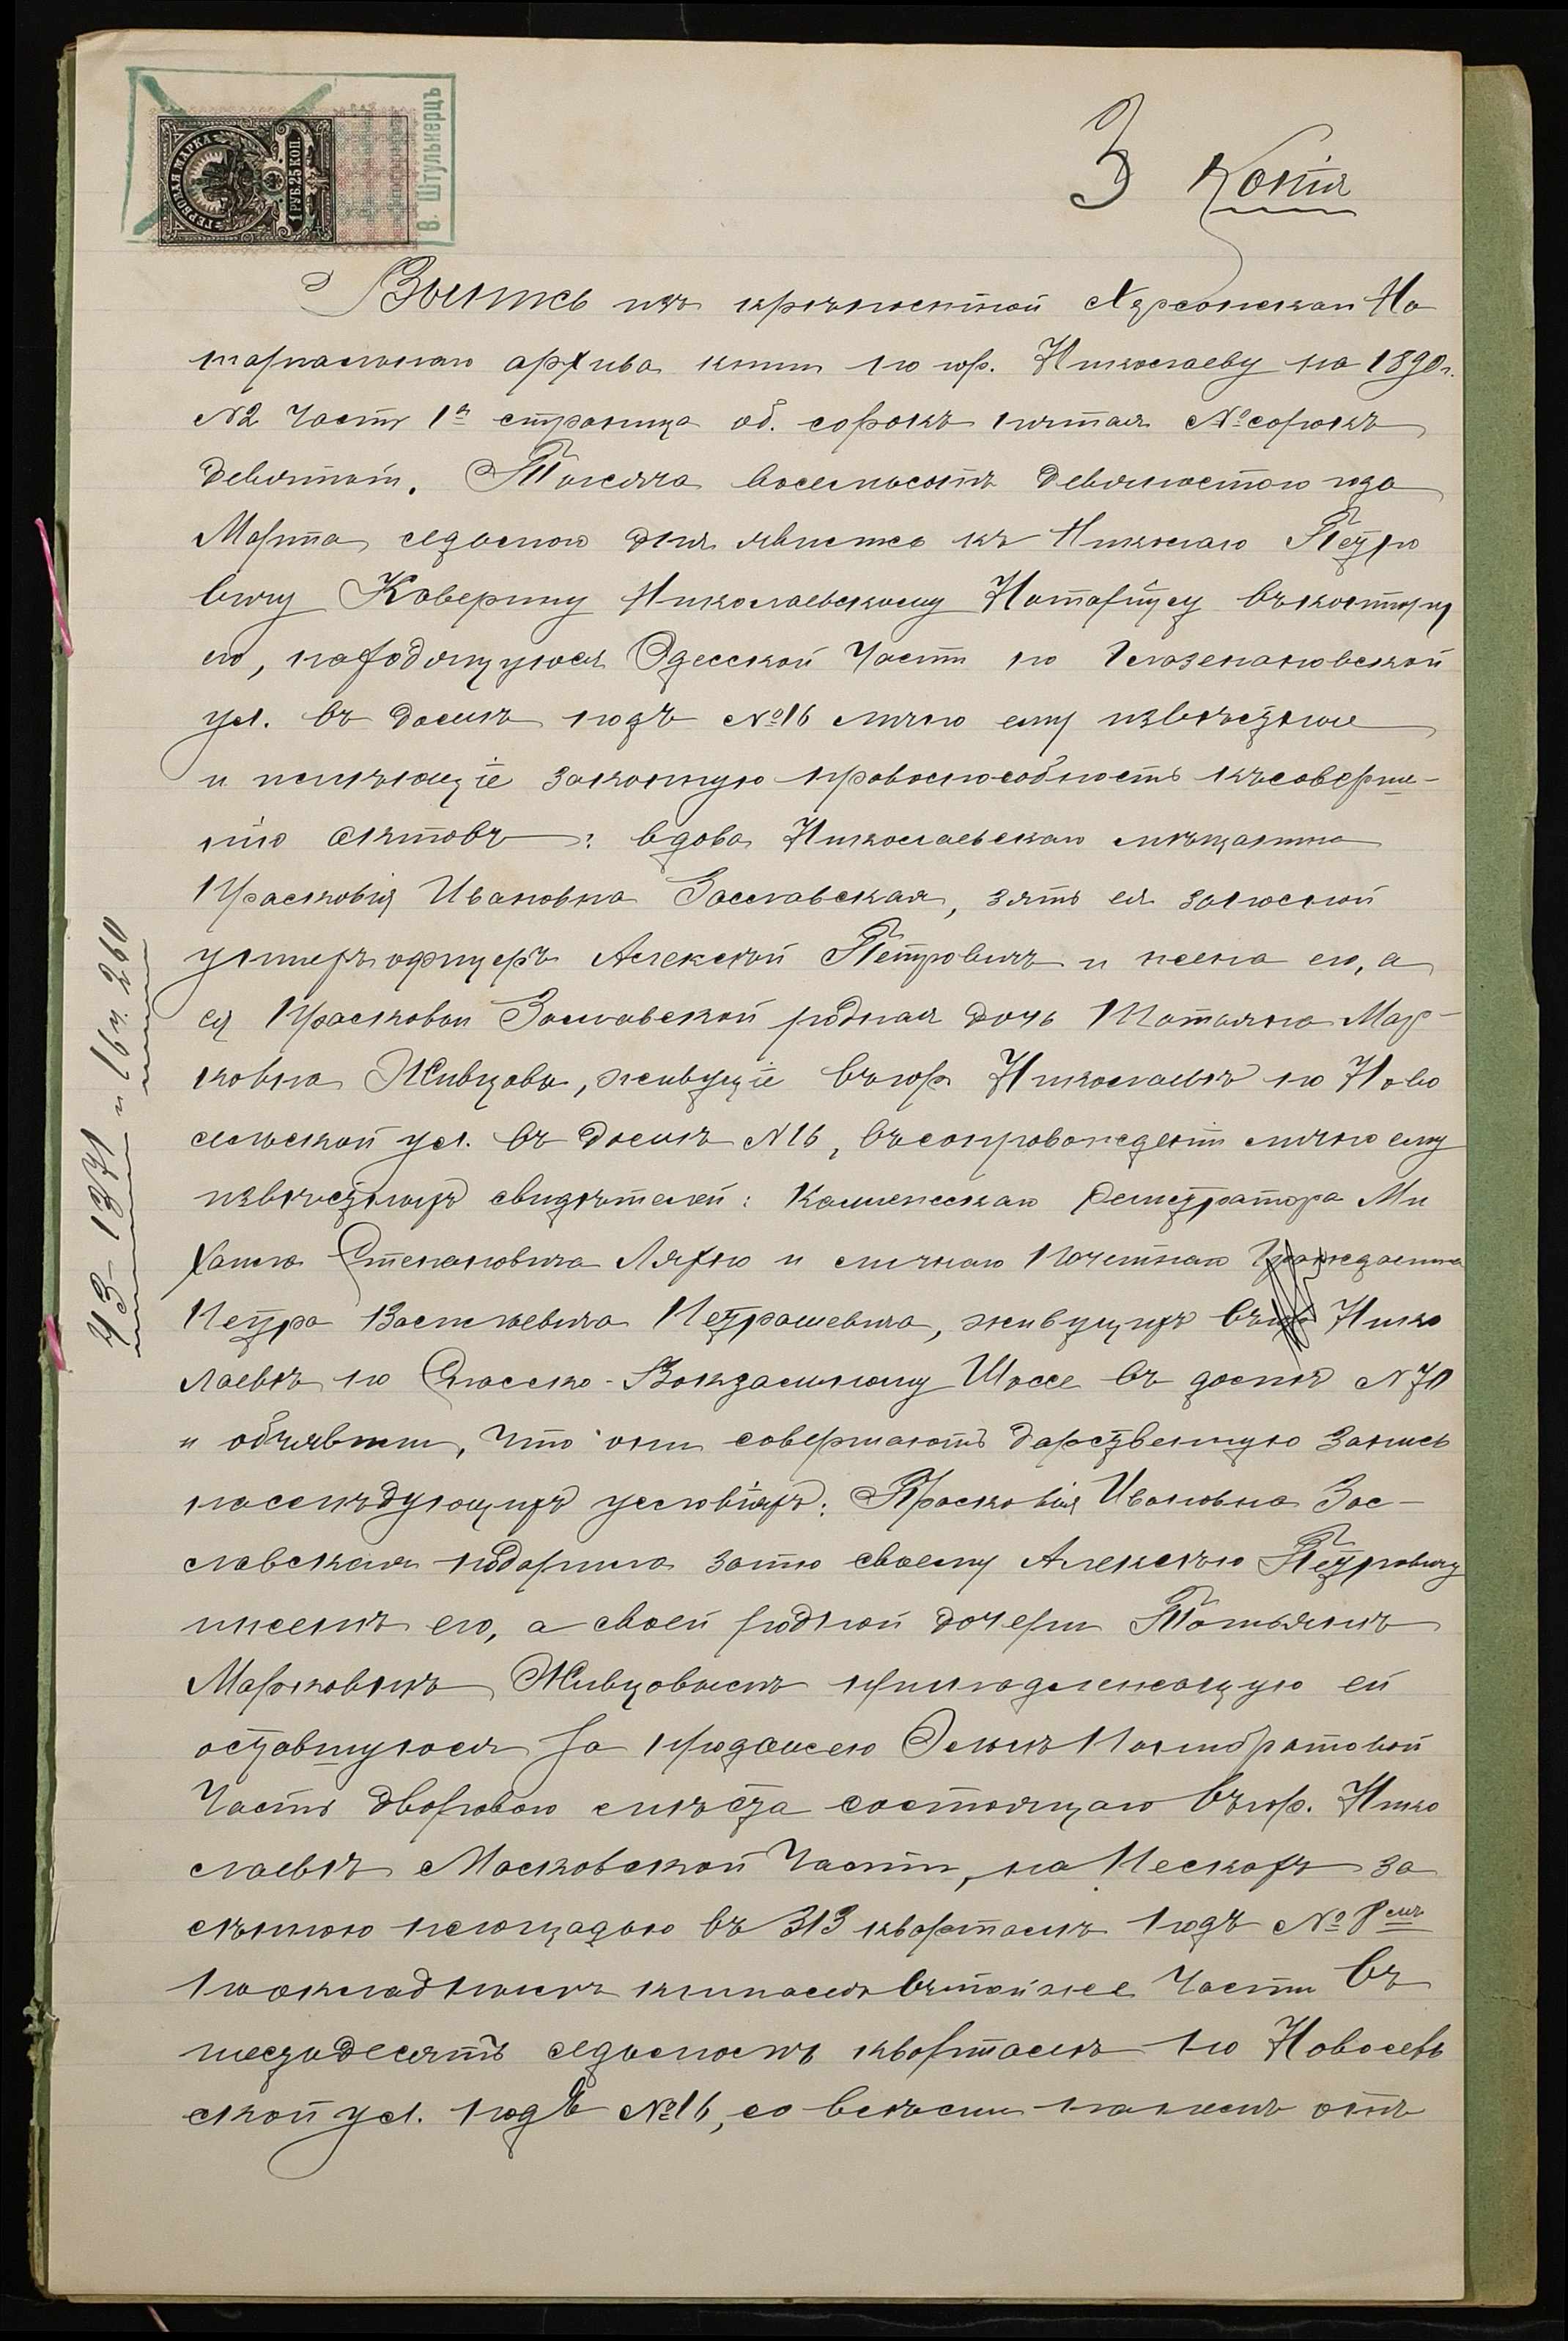 ГЕРБОВАЯ МАРКА
1 РУБ. 25 КОП.
В. Штулькерцъ
3 Копія
Выпись изъ крѣпостной Херсонскаго Но
таріальнаго архива книги по гор. Николаеву на 1890 г.
№2 часть 1я страница об. сорокъ пятая № сорокъ
девятый. Тысяча восемьсотъ девяностого года
Марта седьмого дня явились къ Николаю Петро
вичу Каверину Николаевскому Нотаріусу въ контору
его, находящуюся Одесской Части по Глазенаповской
ул. въ домѣ подъ №16 лично ему извѣстные
и имѣющіе законную правоспособность къ соверше-
нію актовъ: вдова Николаевскаго мѣщанина
Прасковія Ивановна Заславская, зять ея запасной
унтеръ офицеръ Алексѣй Петровичъ и жена его, а
ея Прасковьи Заславской родная дочь Татьяна Мар-
ковна Живцовы, живущіе въ гор. Николаевѣ по Ново
сельской ул. въ домѣ №16, въ сопровожденіи лично ему
извѣстныхъ свидѣтелей: Коллежскаго Регистратора Ми
хаила Степановича Ляхно и личнаго Почетнаго Гражданина
Петра Васильевича Петрашевича, живущихъ въ Нико
лаевѣ по Спасско-Вокзальному Шоссе въ домѣ №70
и объявили, что они совершаютъ дарственную запись
на слѣдующихъ условіяхъ: Прасковія Ивановна Зас-
лавская подарила зятю своему Алексѣю Петровичу
и женѣ его, а своей родной дочери Татьянѣ
Марковнѣ Живцовымъ принадлежащую ей
оставшуюся за продажею Еленѣ Понибратовой
Часть дворового мѣста состоящаго въ гор. Нико
лаевѣ Московской Части, на Пескахъ за
сѣнною площадью въ 313 кварталѣ подъ № 8мъ
по окладнымъ книгамъ въ той же Части въ
шестьдесятъ седьмомъ кварталѣ по Новосель
ской ул. подъ №16, со всѣми на немъ
43-1371 и 16 ч. 260